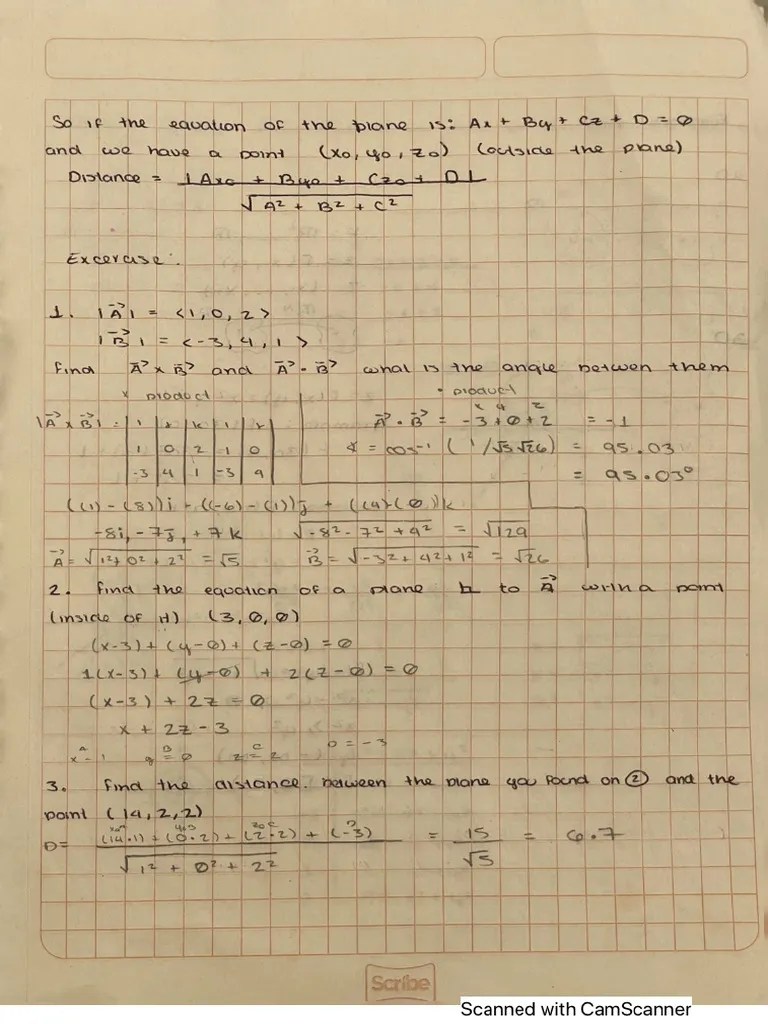 So if the equation of the plane is: Ax + By + Cz + D = 0
and we have a point (x0, y0, z0) (outside the plane)
Distance = |Ax0 + By0 + Cz0 + D|
√A² + B² + C²
Excercise:
1. |A→| = <1, 0, 2>
|B→| = <-3, 4, 1>
Find A→ x B→ and A→ · B→ what is the angle betwen them
x product
• product
|A→ x B→| = | i | j | k | i | j |
1 | 0 | 2 | 1 | 0
-3 | 4 | 1 | -3 | 4
x y z
A→ · B→ = -3 + 0 + 2 = -1
∢ = cos⁻¹ ( 1/√5 √26) = 95.03
= 95.03°
((1) - (8))i - ((-6) - (1))j + ((4)-(0))k
-8i, -7j, +7k √-8² - 7² + 4² = √129
A→ = √1² + 0² + 2² = √5 B→ = √-3² + 4² + 1² = √26
2. Find the equation of a plane to A→ with a point
(inside of it) (3, 0, 0)
(x-3) + (y-0) + (z-0) = 0
1(x-3) + (y-0) + 2(z-0) = 0
(x-3) + 2z = 0
x + 2z - 3
A B C D = -3
x = 1 y = 0 z = 2
3. Find the distance between the plane you found on ② and the
point (14, 2, 2)
D = (14·1) + (0·2) + (2·2) + (-3) = 15 = 6.7
√1² + 0² + 2² √5
Scribe
Scanned with CamScanner